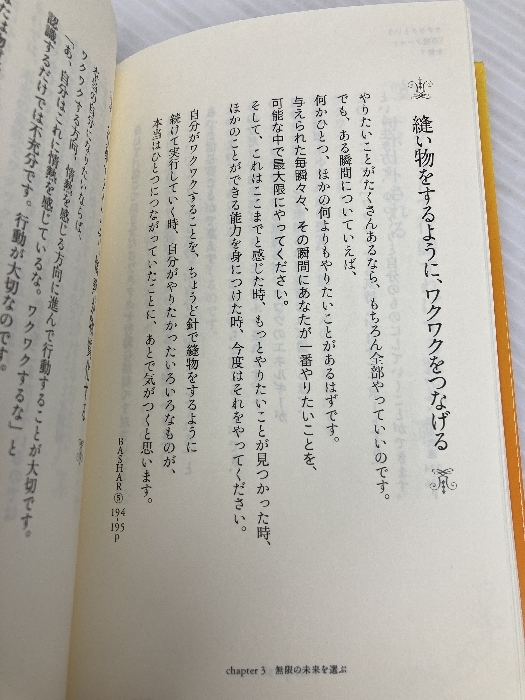 縫い物をするように、ワクワクをつなげる
やりたいことがたくさんあるなら、もちろん全部やっていいのです。
でも、ある瞬間についていえば、
何かひとつ、ほかの何よりもやりたいことがあるはずです。
与えられた毎瞬々々、その瞬間にあなたが一番やりたいことを、
可能な中で最大限にやってください。
そして、これはここまでと感じた時、もっとやりたいことが見つかった時、
ほかのことができる能力を身につけた時、今度はそれをやってください。
自分がワクワクすることを、ちょうど針で縫物をするように
続けて実行していく時、自分がやりたかったいろいろなものが、
本当はひとつにつながっていたことに、あとで気がつくと思います。
BASHAR⑤ 194-195p
chapter 3 無限の未来を選ぶ
ワクワクする方向、情熱を感じる方向に進んで行動することが大切です。
「あ、自分はこれに情熱を感じているな。ワクワクするな」と
認識するだけでは不充分です。行動が大切なのです。